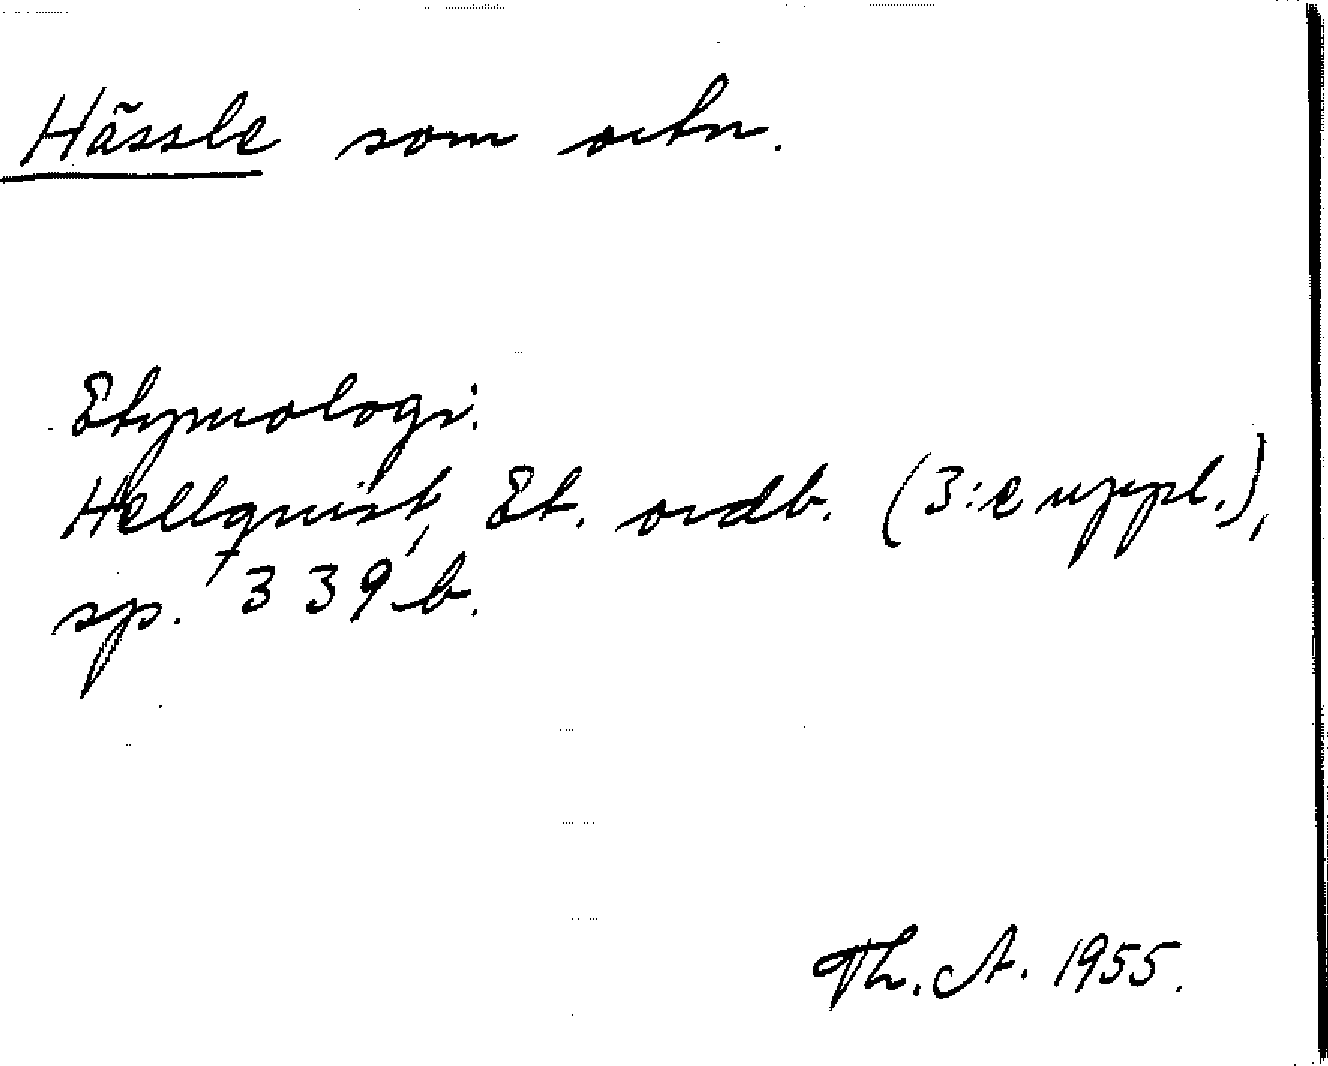 Hässle som ortn.
Etymologi:
Hellquist, Et. ordb. (3:e uppl.),
sp. 339 b.
Th. A. 1955.